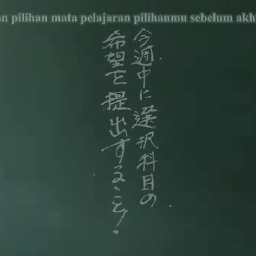 n pilihan mata pelajaran pilihanmu sebelum akh
今週中に選択科目の
希望を提出すること!